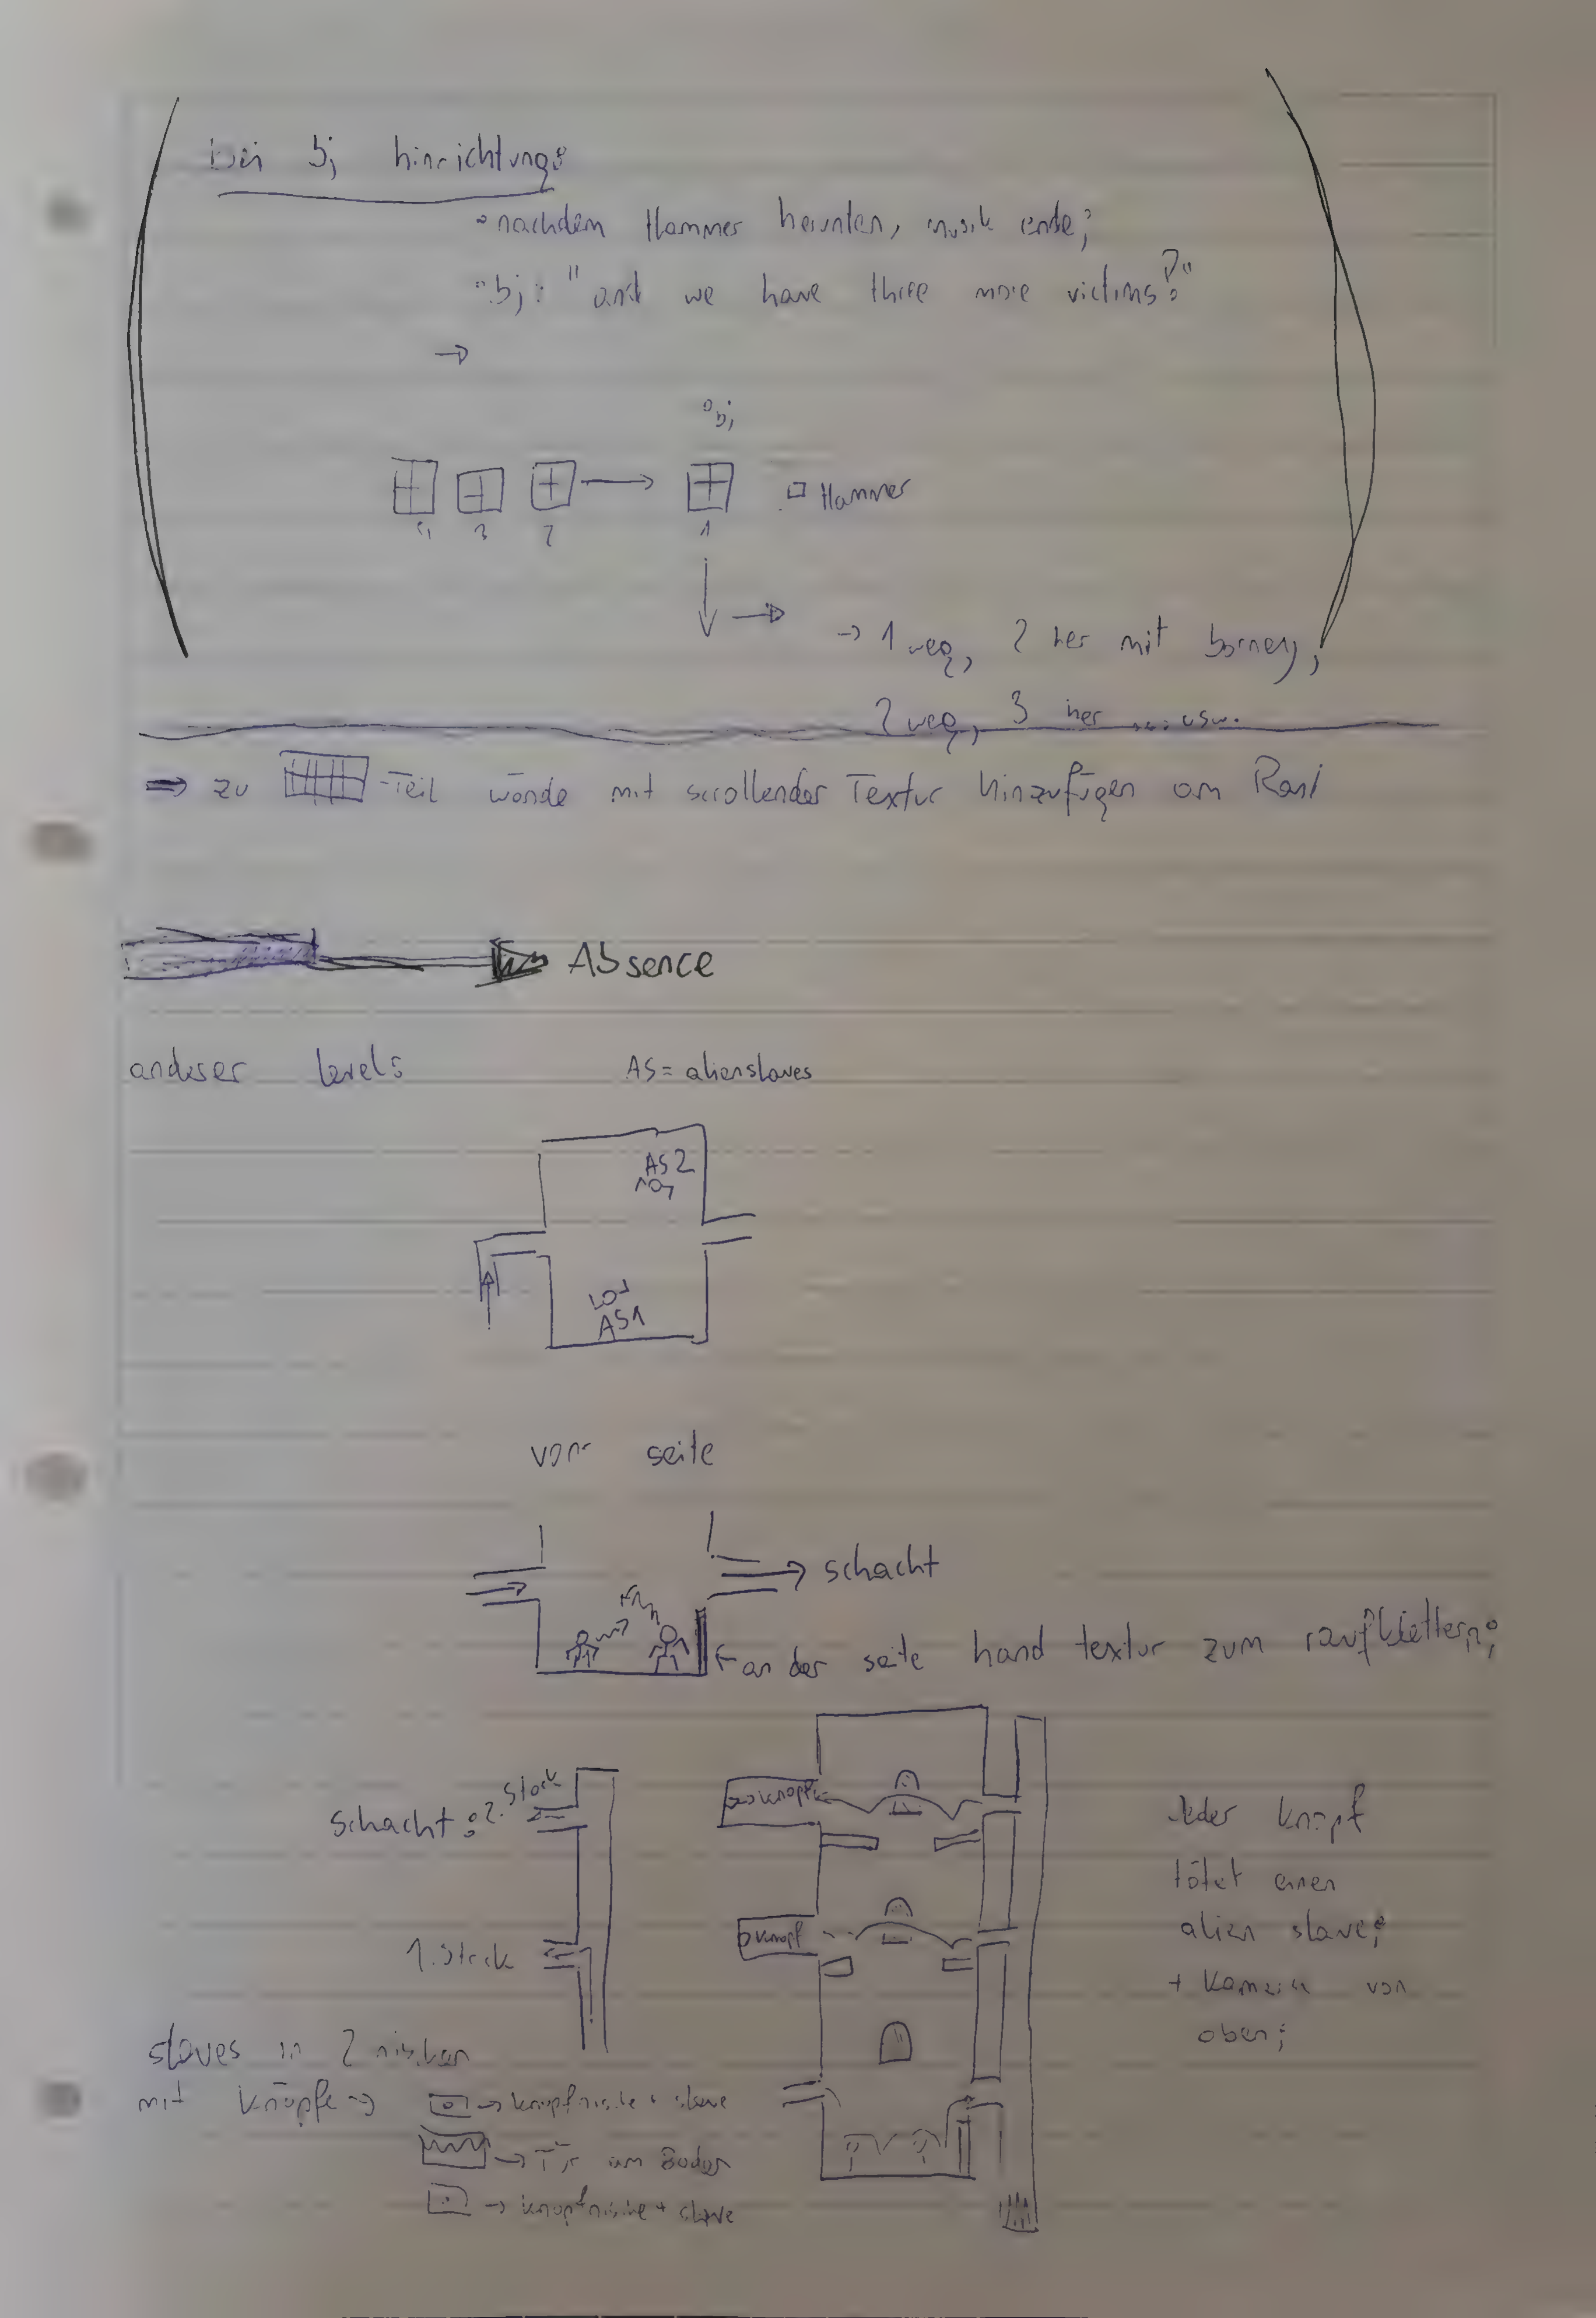 bei bj hinrichtung:
• nachdem Hammer herunten, musik ende;
• bj: "and we have three more victims!?"
→
bj
4 3 2 → 1 Hammer
→ 1 weg, 2 her mit barney;
2 weg, 3 her ... usw.
⇒ zu -Teil wände mit scrollender Textur hinzufügen am Rand
Absence
anderer level:
AS = alienslaves
AS2
AS1
von seite
→ schacht
← an der seite hand textur zum raufklettern;
schacht: 2. Stock
1. Stock
Knöpfe
Knopf
Jeder knopf
tötet einen
alien slave;
+ Kamera von
oben;
slaves in 2 nischen
mit Knöpfe →
→ knopfnische + slave
→ Tür am Boden
→ knopfnische + slave